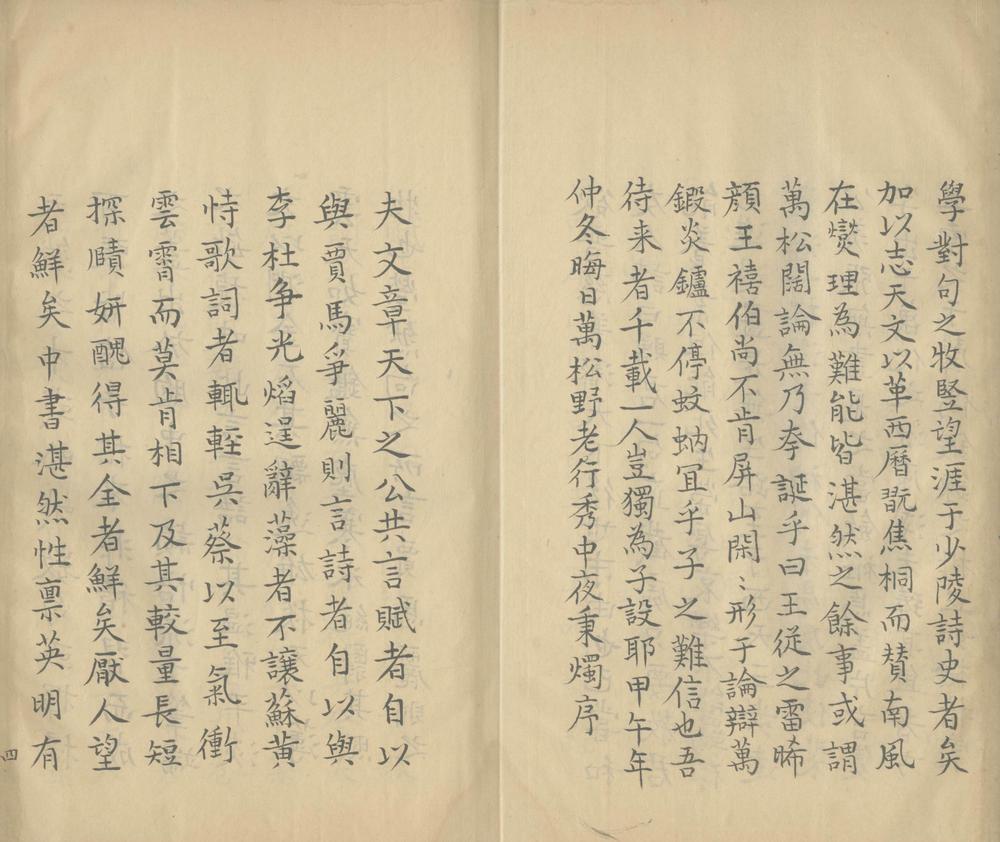 學對句之牧竪望涯于少陵詩史者矣
加以志天文以革西曆翫焦桐而賛南風
在爕理為難能皆湛然之餘事或謂
萬松闊論無乃夸誕乎曰王從之雷晞
顔王禧伯尚不肯屏山閑〻形于論辯萬
鍜炎鑪不停蚊蚋冝乎子之難信也吾
待来者千載一人豈獨為子設耶甲午年
仲冬晦日萬松野老行秀中夜秉燭序
夫文章天下之公共言賦者自以
與賈馬爭麗則言詩者自以與
李杜争光熖逞辭藻者不讓蘇黄
恃歌詞者輒輕吳蔡以至氣衝
雲霄而莫肯相下及其較量長短
探賾妍醜得其全者鮮矣厭人望
者鮮矣中書湛然性禀英明有
四